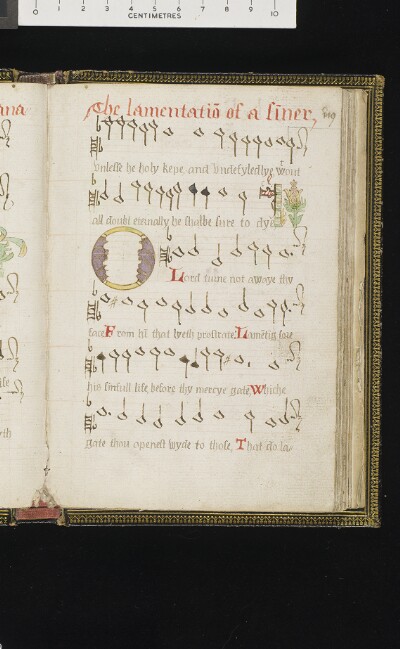 0 1 2 3 4 5 6 7 8 9 10
CENTIMETRES
ana
The lamentatiō of a sīner,
Vnlesse he holy kepe, and Vndefyledlye wout
all doubt eternally he shalbe sure to dye
O Lord turne not awaye thy
face From hī that lyeth prostrate, Lamētīg sore
his sinfull life, before thy mercye gate, Whiche
gate thou openest wyde to those, That do la-